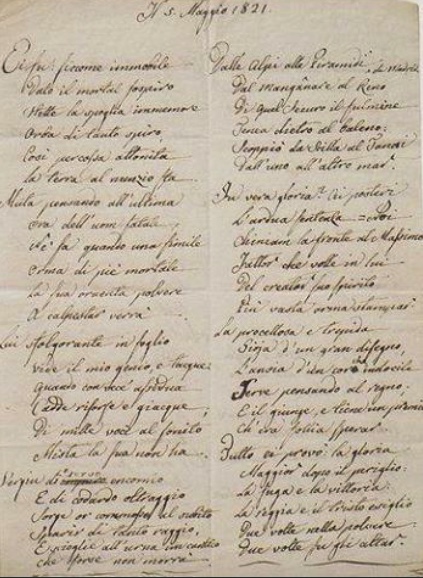 Il 5. Maggio 1821.
Ei fu: siccome immobile
Dato il mortal sospiro
Stette la spoglia immemore
Orba di tanto spiro,
Così percossa attonita
La terra al nunzio sta
Muta pensando all'ultima
Ora dell'uom fatale
Nè sa quando una simile
Orma di piè mortale
La sua cruenta polvere
A calpestar verrà
Lui sfolgorante in soglio
Vide il mio genio, e tacque
Quando con vece assidua
Cadde risorse e giacque,
Di mille voci al sonito
Mista la sua non ha
Vergin di servo encomio
E di codardo oltraggio
Sorge or commosso al subito
Sparir di tanto raggio;
E scioglie all'urna un cantico
Che forse non morrà
Dalle Alpi alle Piramidi
Dal Manzanare al Reno
Di quel securo il fulmine
Tenea dietro al baleno;
Scoppiò da Scilla al Tanai
Dall'uno all'altro mar.
Fu vera gloria? Ai posteri
L'ardua sentenza
Chiniam la fronte al Massimo
Fattor che volle in lui
Del creator suo spirito
Più vasta orma stampar
La procellosa e trepida
Gioja d'un gran disegno,
L'ansia d'un cor indocile
Serve pensando al regno;
E il giunge, e tiene un premio
Ch'era follia sperar
Tutto ei provò: la gloria
Maggior dopo il periglio:
La fuga e la vittoria:
La reggia e il tristo esiglio
Due volte nella polvere
Due volte su gli altar.